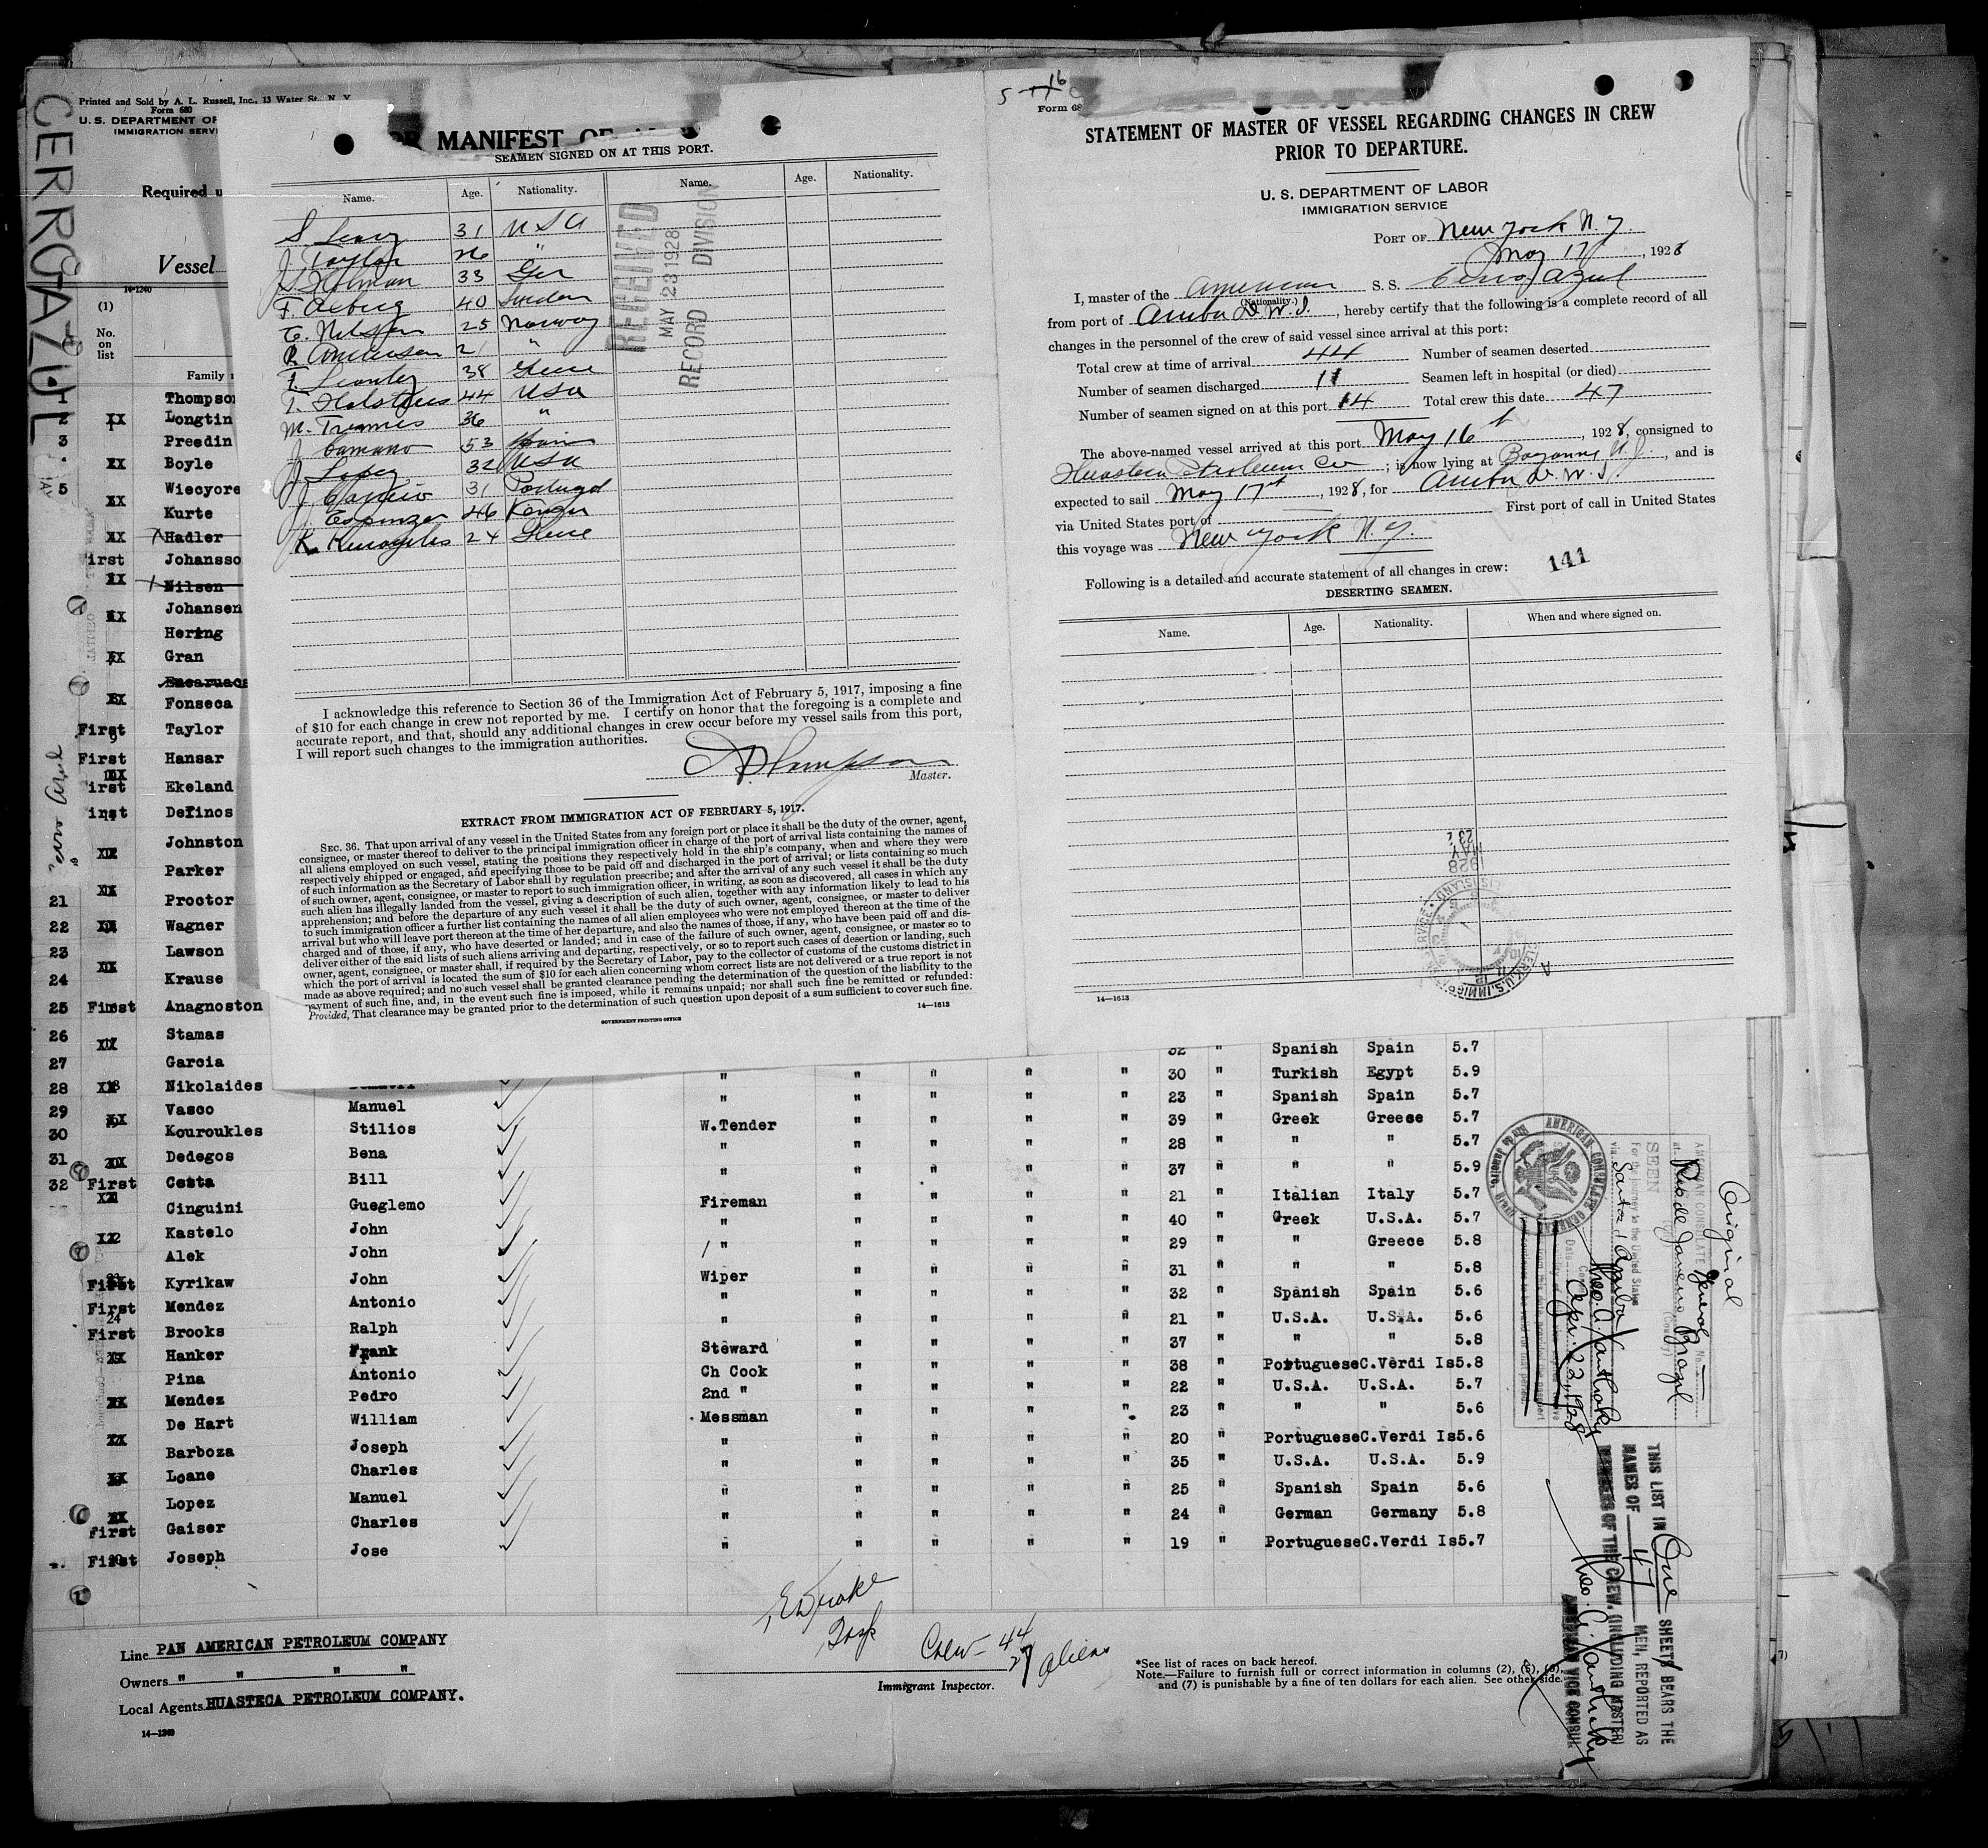 CERRO AZUL
Printed and Sold by A. L. Russell, Inc., 13 Water St., N. Y.
Form 680
U. S. DEPARTMENT OF
IMMIGRATION SERVI
Required u
Vessel
14-1240
(1)
No.
on
list
Family
Thompson
2 Longtin
3 Preedin
Boyle
5 Wiecyore
Kurte
Hadler
irst Johansso
Nilsen
Johansen
Hering
Gran
Fonseca
First Taylor
First Hansar
irst Ekeland
irst Definos
Johnston
Parker
21 Proctor
22 Wagner
23 Lawson
24 Krause
25 First Anagnoston
26 Stamas
27 Garcia
28 Nikolaides
29 Vasco
30 Kouroukles
31 Dedegos
32 First Costa
Cinguini
Kastelo
Alek
First Kyrikaw
First Mendez
24
First Brooks
Hanker
Pina
Mendez
De Hart
Barboza
Loane
Lopez
First Gaiser
First Joseph
OR MANIFEST OF
SEAMEN SIGNED ON AT THIS PORT.
Name. Age. Nationality. Name. Age. Nationality.
S. 31 USA
J. Taylor 26 "
Holman 33 Ger
F. 40 Sweden
C. Nilssen 25 Norway
Andersen 21 "
38 Greece
T. 44 USA
M. 36 "
J. Camano 53 Spain
J. Lopez 32 USA
J. 31 Portugal
J. Espinzer 46
K. 24 Greece
RECEIVED
MAY 23 1928
RECORD DIVISION
I acknowledge this reference to Section 36 of the Immigration Act of February 5, 1917, imposing a fine
of $10 for each change in crew not reported by me. I certify on honor that the foregoing is a complete and
accurate report, and that, should any additional changes in crew occur before my vessel sails from this port,
I will report such changes to the immigration authorities.
Thompson
Master.
EXTRACT FROM IMMIGRATION ACT OF FEBRUARY 5, 1917.
SEC. 36. That upon arrival of any vessel in the United States from any foreign port or place it shall be the duty of the owner, agent,
consignee, or master thereof to deliver to the principal immigration officer in charge of the port of arrival lists containing the names of
all aliens employed on such vessel, stating the positions they respectively hold in the ship's company, when and where they were
respectively shipped or engaged, and specifying those to be paid off and discharged in the port of arrival; or lists containing so much
of such information as the Secretary of Labor shall by regulation prescribe; and after the arrival of any such vessel it shall be the duty
of such owner, agent, consignee, or master to report to such immigration officer, in writing, as soon as discovered, all cases in which any
such alien has illegally landed from the vessel, giving a description of such alien, together with any information likely to lead to his
apprehension; and before the departure of any such vessel it shall be the duty of such owner, agent, consignee, or master to deliver
to such immigration officer a further list containing the names of all alien employees who were not employed thereon at the time of the
arrival but who will leave port thereon at the time of her departure, and also the names of those, if any, who have been paid off and dis-
charged and of those, if any, who have deserted or landed; and in case of the failure of such owner, agent, consignee, or master so to
deliver either of the said lists of such aliens arriving and departing, respectively, or so to report such cases of desertion or landing, such
owner, agent, consignee, or master shall, if required by the Secretary of Labor, pay to the collector of customs of the customs district in
which the port of arrival is located the sum of $10 for each alien concerning whom correct lists are not delivered or a true report is not
made as above required; and no such vessel shall be granted clearance pending the determination of the question of the liability to the
payment of such fine, and, in the event such fine is imposed, while it remains unpaid; nor shall such fine be remitted or refunded:
Provided, That clearance may be granted prior to the determination of such question upon deposit of a sum sufficient to cover such fine.
GOVERNMENT PRINTING OFFICE 14—1613
5 16
Form 68
STATEMENT OF MASTER OF VESSEL REGARDING CHANGES IN CREW
PRIOR TO DEPARTURE.
U. S. DEPARTMENT OF LABOR
IMMIGRATION SERVICE
PORT OF New York N.Y.
May 17, 1928
I, master of the American S. S. Cerro Azul
(Nationality.)
from port of Aruba D.W.I., hereby certify that the following is a complete record of all
changes in the personnel of the crew of said vessel since arrival at this port:
Total crew at time of arrival 44 Number of seamen deserted
Number of seamen discharged 11 Seamen left in hospital (or died)
Number of seamen signed on at this port 14 Total crew this date 47
The above-named vessel arrived at this port May 16th, 1928, consigned to
Huasteca Petroleum Co; is now lying at Bayonne N.J., and is
expected to sail May 17th, 1928, for Aruba D.W.I.
via United States port of First port of call in United States
this voyage was New York N.Y.
Following is a detailed and accurate statement of all changes in crew: 141
DESERTING SEAMEN.
Name. Age. Nationality. When and where signed on.
1928
MAY
23
14—1613
32 " Spanish Spain 5.7
" " " " " 30 " Turkish Egypt 5.9
Manuel " " " " " 23 " Spanish Spain 5.7
Stilios W.Tender " " " " 39 " Greek Greece 5.7
Bena " " " " " 28 " " " 5.7
Bill " " " " " 37 " " " 5.9
Gueglemo Fireman " " " " 21 " Italian Italy 5.7
John " " " " " 40 " Greek U.S.A. 5.7
John " " " " " 29 " " Greece 5.8
John Wiper " " " " 31 " " " 5.8
Antonio " " " " " 32 " Spanish Spain 5.6
Ralph " " " " " 21 " U.S.A. U.S.A. 5.6
Frank Steward " " " " 37 " " " 5.8
Antonio Ch Cook " " " " 38 " Portuguese C.Verdi Is 5.8
Pedro 2nd " " " " " 22 " U.S.A. U.S.A. 5.7
William Messman " " " " 23 " " " 5.6
Joseph " " " " " 20 " Portuguese C.Verdi Is 5.6
Charles " " " " " 35 " U.S.A. U.S.A. 5.9
Manuel " " " " " 25 " Spanish Spain 5.6
Charles " " " " " 24 " German Germany 5.8
Jose " " " " " 19 " Portuguese C.Verdi Is 5.7
Crew- 44
27 aliens
Line PAN AMERICAN PETROLEUM COMPANY
Owners " " " "
Local Agents HUASTECA PETROLEUM COMPANY.
14—1240
Immigrant Inspector.
*See list of races on back hereof.
Note.—Failure to furnish full or correct information in columns (2), (5), (6),
and (7) is punishable by a fine of ten dollars for each alien. See other side.
Original
AMERICAN CONSULATE General
at Rio de Janeiro Brazil
SEEN
For the journey to the United States
via Santos, Aruba
Apr. 23, 1928
AMERICAN CONSULATE GENERAL
Rio de Janeiro, Brazil
THIS LIST IN One SHEETS BEARS THE
NAMES OF 47 MEN, REPORTED AS
MEMBERS OF THE CREW. (INCLUDING MASTER)
AMERICAN VICE CONSUL